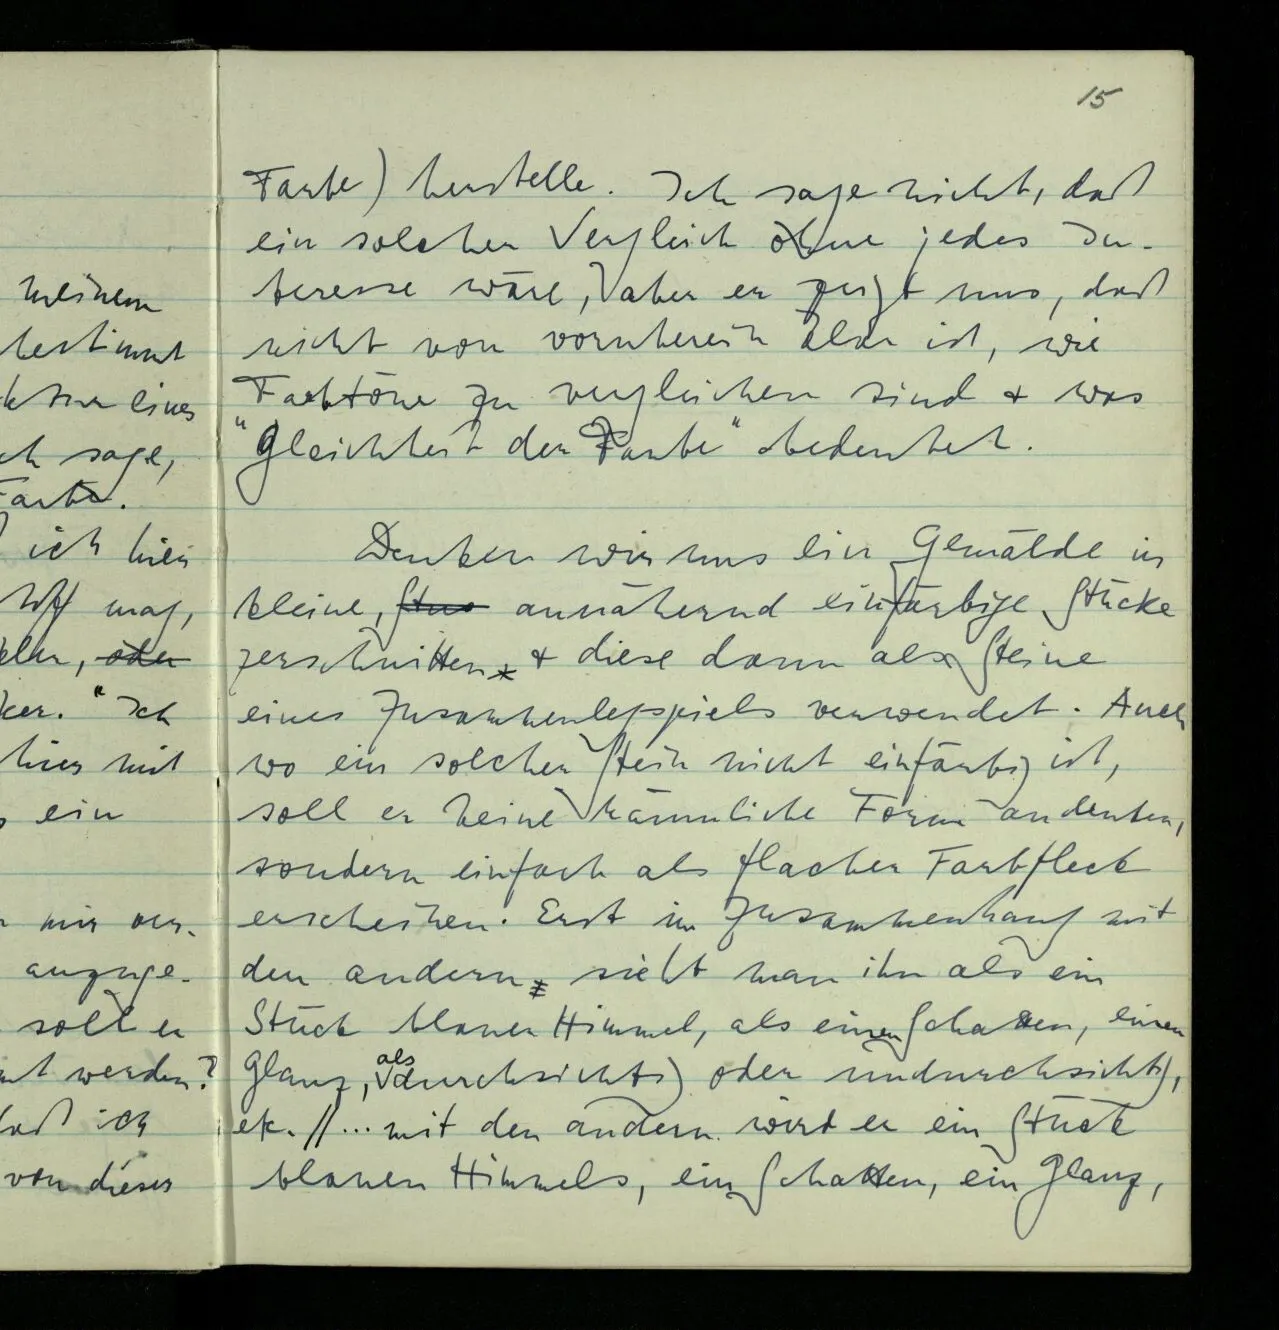 15
Farbe) herstelle. Ich sage nicht, daß
ein solcher Vergleich ohne jedes In-
teresse wäre, aber er zeigt uns, daß
nicht von vornherein klar ist, wie
Farbtöne zu vergleichen sind & was
"Gleichheit der Farbe" bedeutet.
Denken wir uns ein Gemälde in
kleine, annähernd einfarbige Stücke
zerschnitten & diese dann als Steine
eines Zusammenlegspiels verwendet. Auch
wo ein solcher Stein nicht einfärbig ist,
soll er keine räumliche Form andeuten,
sondern einfach als flacher Farbfleck
erscheinen. Erst im Zusammenhang mit
den andern sieht man ihn als ein
Stück blauer Himmel, als einen Schatten, einen
Glanz, als durchsichtig oder undurchsichtig,
etc. // ... mit den andern wird er ein Stück
blauen Himmels, ein Schatten, ein Glanz,
meinem
bestimmt
eines
ich sage,
Farbe.
ich hier
mag,
oder
"Ich
hier mit
ein
mir
soll er
werden?
daß ich
von dieser